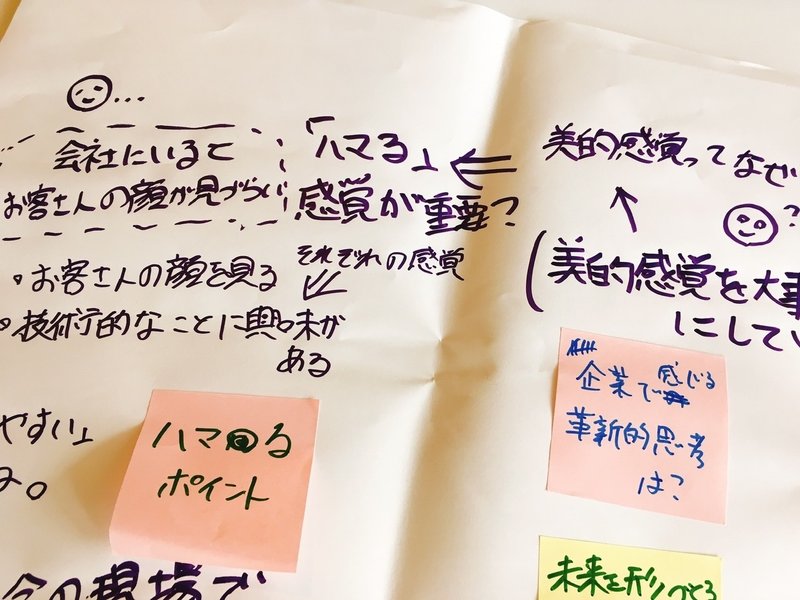 会社にいると
お客さんの顔が見づらい
「ハマる」
感覚が重要?
美的感覚ってなぜ
?
(美的感覚を大事
にしてい
・お客さんの顔を見る
・技術的なことに興味が
ある
それぞれの感覚
やすい」
る。
ハマるる
ポイント
企業で感じる
革新的思考
は?
未来を形づくる
現場で